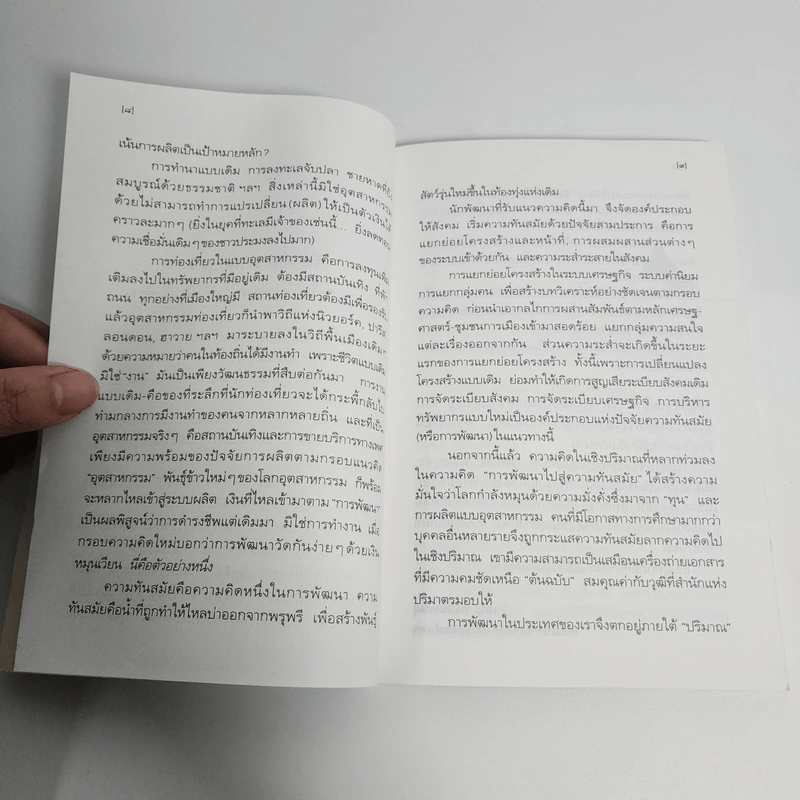 [๘]
เน้นการผลิตเป็นเป้าหมายหลัก?
การทำนาแบบเดิม การลงทะเลจับปลา ชายหาดที่ยัง
สมบูรณ์ด้วยธรรมชาติ ฯลฯ สิ่งเหล่านี้มิใช่อุตสาหกรรม
ด้วยไม่สามารถทำการแปรเปลี่ยน (ผลิต) ให้เป็นตัวเงินได้
คราวละมากๆ (ยิ่งในยุคที่ทะเลมีเจ้าของเช่นนี้... ยิ่งลดทอน
ความเชื่อมั่นเดิมๆ ของชาวประมงลงไปมาก)
การท่องเที่ยวในแบบอุตสาหกรรม คือการลงทุนเพิ่ม
เติมลงไปในทรัพยากรที่มีอยู่เดิม ต้องมีสถานบันเทิง ที่พัก
ถนน ทุกอย่างที่เมืองใหญ่มี สถานท่องเที่ยวต้องมีเพื่อรองรับ
แล้วอุตสาหกรรมท่องเที่ยวก็นำพาวิถีแห่งนิวยอร์ค, ปารีส
ลอนดอน, ฮาวาย ฯลฯ มาระบายลงในวิถีพื้นเมืองเดิม
ด้วยความหมายว่าคนในท้องถิ่นได้มีงานทำ เพราะชีวิตแบบเดิม
มิใช่ “งาน” มันเป็นเพียงวัฒนธรรมที่สืบต่อกันมา การงาน
แบบเดิม-คือของที่ระลึกที่นักท่องเที่ยวจะได้กระพี้กลับไป
ท่ามกลางการมีงานทำของคนจากหลากหลายถิ่น และที่เป็น
อุตสาหกรรมจริงๆ คือสถานบันเทิงและการขายบริการทางเพศ
เพียงมีความพร้อมของปัจจัยการผลิตตามกรอบแนวคิด
“อุตสาหกรรม” พันธุ์ข้าวใหม่ๆ ของโลกอุตสาหกรรม ก็พร้อม
จะหลากไหลเข้าสู่ระบบผลิต เงินที่ไหลเข้ามาตาม “การพัฒนา”
เป็นผลพิสูจน์ว่าการดำรงชีพแต่เดิมมา มิใช่การทำงาน เมื่อ
กรอบความคิดใหม่บอกว่าการพัฒนาวัดกันง่ายๆ ด้วยเงิน
หมุนเวียน นี่คือตัวอย่างหนึ่ง
ความทันสมัยคือความคิดหนึ่งในการพัฒนา ความ
ทันสมัยคือน้ำที่ถูกทำให้ไหลบ่าออกจากพรุพรี เพื่อสร้างพันธุ์
[๙]
สัตว์รุ่นใหม่ขึ้นในท้องทุ่งแห่งเดิม
นักพัฒนาที่รับแนวความคิดนี้มา จึงจัดองค์ประกอบ
ให้สังคม เริ่มความทันสมัยด้วยปัจจัยสามประการ คือการ
แยกย่อยโครงสร้างและหน้าที่, การผสมผสานส่วนต่างๆ
ของระบบเข้าด้วยกัน และความระส่ำระสายในสังคม
การแยกย่อยโครงสร้างในระบบเศรษฐกิจ ระบบค่านิยม
การแยกกลุ่มคน เพื่อสร้างบทวิเคราะห์อย่างชัดเจนตามกรอบ
ความคิด ก่อนนำเอากลไกการผสานสัมพันธ์ตามหลักเศรษฐ-
ศาสตร์-ชุมชนการเมืองเข้ามาสอดร้อย แยกกลุ่มความสนใจ
แต่ละเรื่องออกจากกัน ส่วนความระส่ำจะเกิดขึ้นในระยะ
แรกของการแยกย่อยโครงสร้าง ทั้งนี้เพราะการเปลี่ยนแปลง
โครงสร้างแบบเดิม ย่อมทำให้เกิดการสูญเสียระเบียบสังคมเดิม
การจัดระเบียบสังคม การจัดระเบียบเศรษฐกิจ การบริหาร
ทรัพยากรแบบใหม่เป็นองค์ประกอบแห่งปัจจัยความทันสมัย
(หรือการพัฒนา) ในแนวทางนี้
นอกจากนี้แล้ว ความคิดในเชิงปริมาณที่หลากท่วมลง
ในความคิด “การพัฒนาไปสู่ความทันสมัย” ได้สร้างความ
มั่นใจว่าโลกกำลังหมุนด้วยความมั่งคั่งซึ่งมาจาก “ทุน” และ
การผลิตแบบอุตสาหกรรม คนที่มีโอกาสทางการศึกษามากกว่า
บุคคลอื่นหลายรายจึงถูกกระแสความทันสมัยลากความคิดไป
ในเชิงปริมาณ เขามีความสามารถเป็นเสมือนเครื่องถ่ายเอกสาร
ที่มีความคมชัดเหนือ “ต้นฉบับ” สมคุณค่ากับวุฒิที่สำนักแห่ง
ปริมาตรมอบให้
การพัฒนาในประเทศของเราจึงตกอยู่ภายใต้ “ปริมาณ”